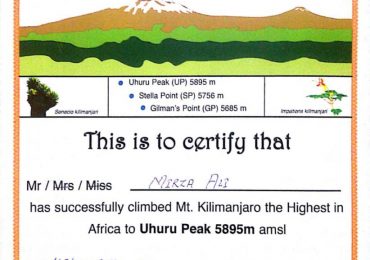 Uhuru Peak (UP) 5895 m
Stella Point (SP) 5756 m
Gilman's Point (GP) 5685 m
Senecio kilimanjari
Impatiens kilimanjari
This is to certify that
Mr / Mrs / Miss MIRZA ALI
has successfully climbed Mt. Kilimanjaro the Highest in
Africa to Uhuru Peak 5895m amsl